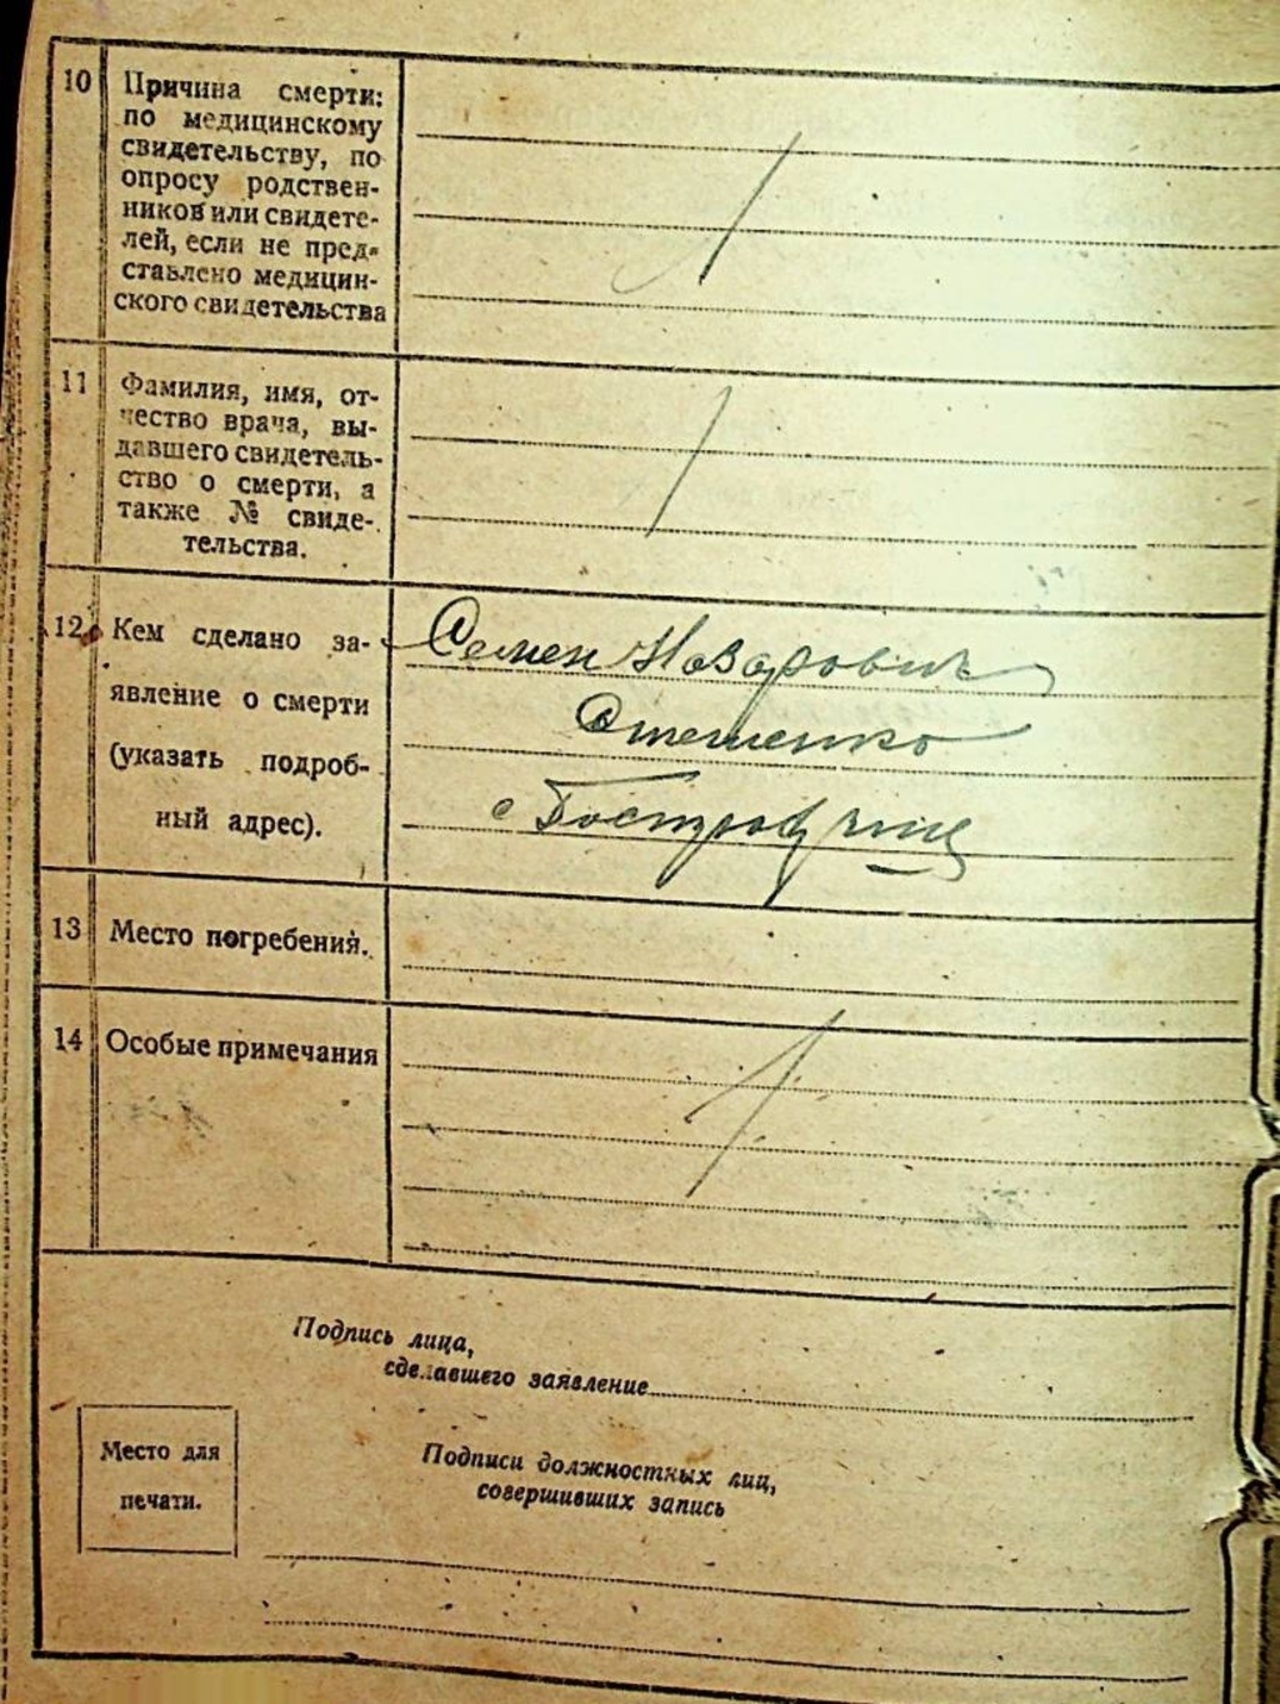 10 Причина смерти:
по медицинскому
свидетельству, по
опросу родствен-
ников или свидете-
лей, если не пред-
ставлено медицин-
ского свидетельства
11 Фамилия, имя, от-
чество врача, вы-
давшего свидетель-
ство о смерти, а
также № свиде-
тельства.
12 Кем сделано за-
явление о смерти
(указать подроб-
ный адрес).
Семен Назарович
Стешенко
с
13 Место погребения.
14 Особые примечания
Подпись лица,
сделавшего заявление
Место для
печати.
Подписи должностных лиц,
совершивших запись